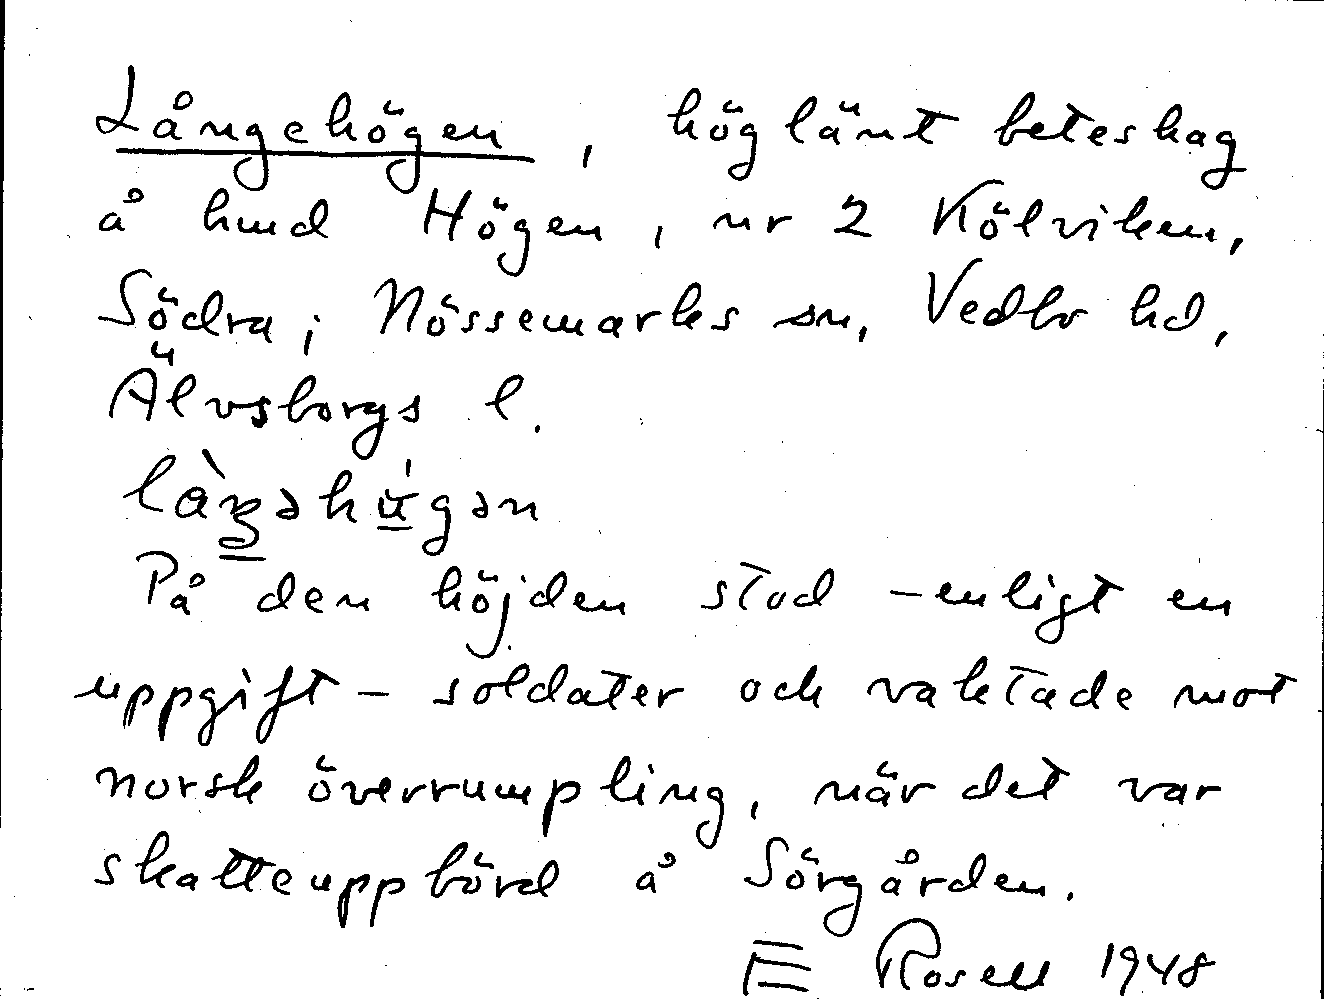 Långehögen, höglänt beteshag
å hmd Högen, nr 2 Kölviken,
Södra, Nössemarks sn, Vedbo hd,
Älvsborgs l.
På den höjden stod – enligt en
uppgift – soldater och vaktade mot
norsk överrumpling, när det var
skatteuppbörd å Sörgården.
E Rosell 1948